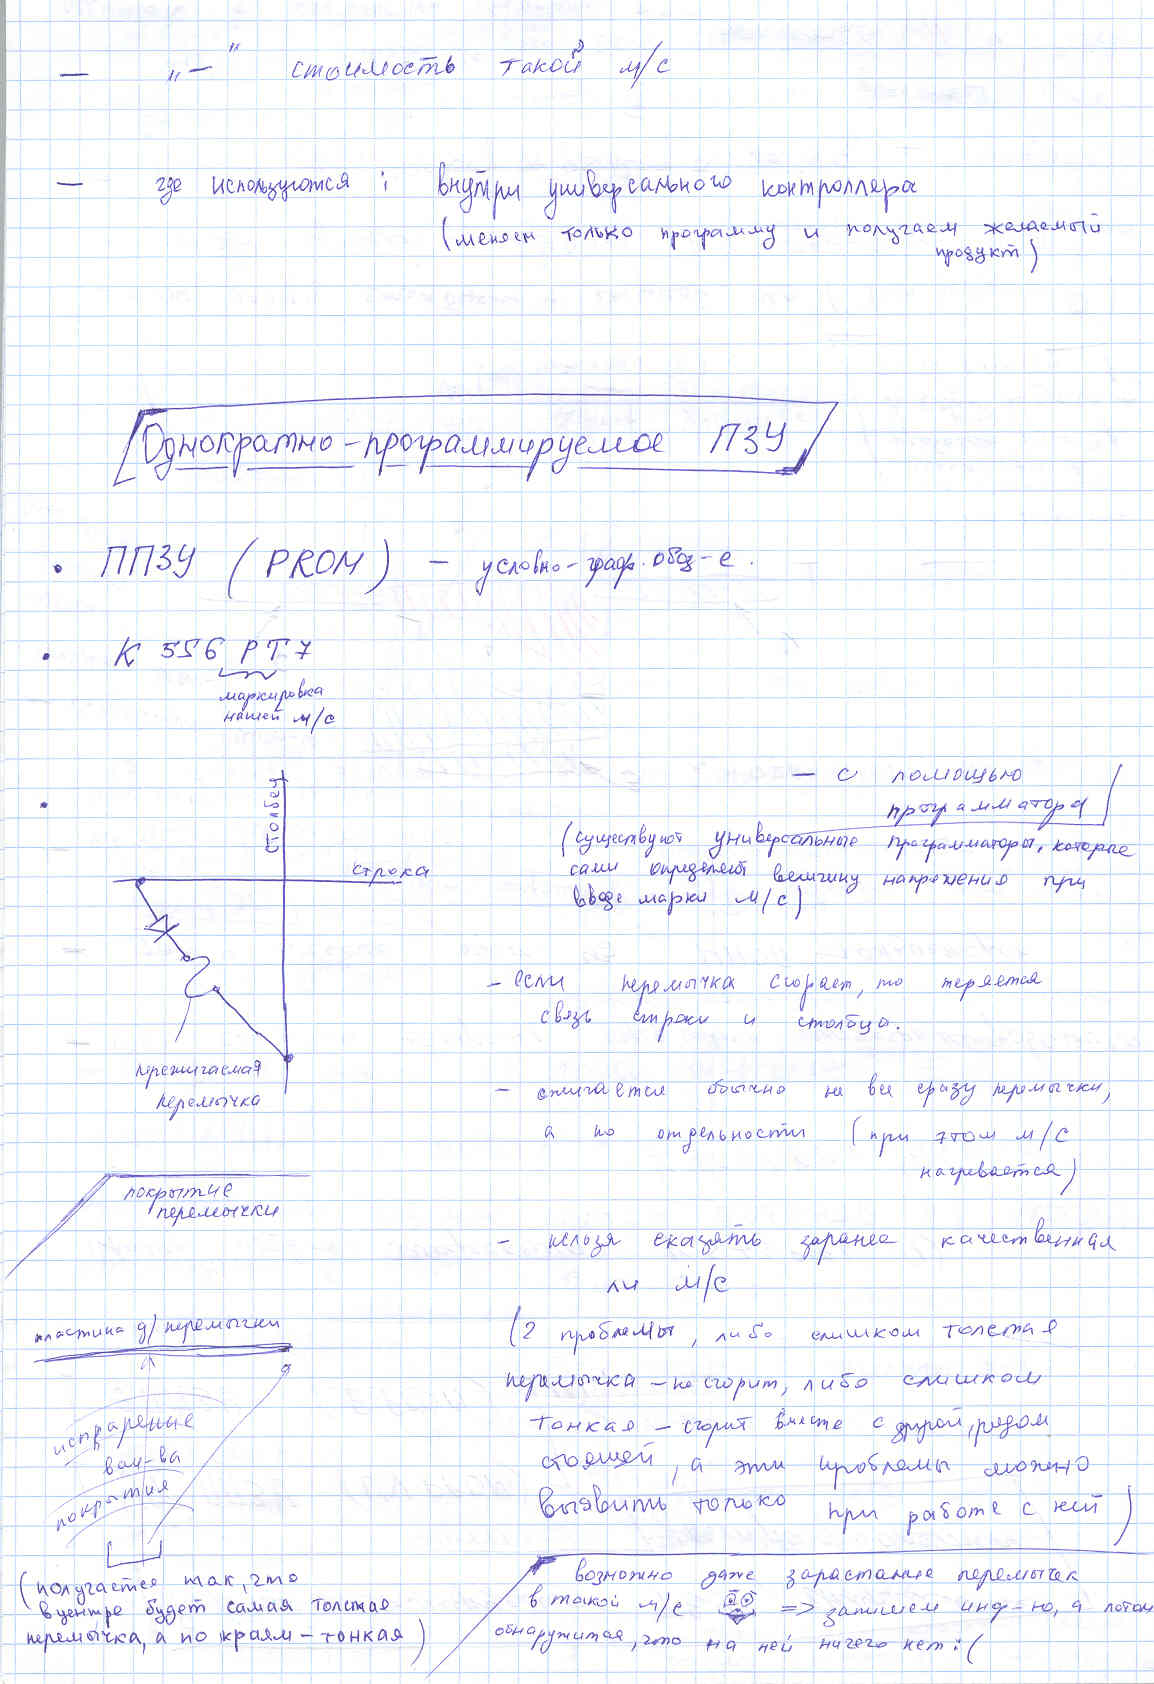 — „ — " стоимость такой м/с
— где используются : внутри универсального контроллера
(меняем только программу и получаем желаемый
продукт)
Однократно-программируемое ПЗУ
• ППЗУ (PROM) — условно-граф. обоз-е.
• К 556 РТ7
маркировка
нашей м/с
•
столбец
строка
пережигаемая
перемычка
— с помощью
программатора
(существуют универсальные программаторы, которые
сами определяют величину напряжения при
вводе марки м/с)
- если перемычка сгорает, то теряется
связь строки и столбца.
- сжигается обычно не все сразу перемычки,
а по отдельности (при этом м/с
нагревается)
- нельзя сказать заранее качественная
ли м/с
(2 проблемы, либо слишком толстая
перемычка – не сгорит, либо слишком
тонкая – сгорит вместе с другой, рядом
стоящей, а эти проблемы можно
выявить только при работе с ней)
покрытие
перемычки
пластина д/перемычки
испарение
вещ-ва
покрытия
(получается так, что
в центре будет самая толстая
перемычка, а по краям – тонкая)
возможно даже зарастание перемычек
в такой м/с => запишем инф-ю, а потом
обнаружится, что на ней ничего нет :(